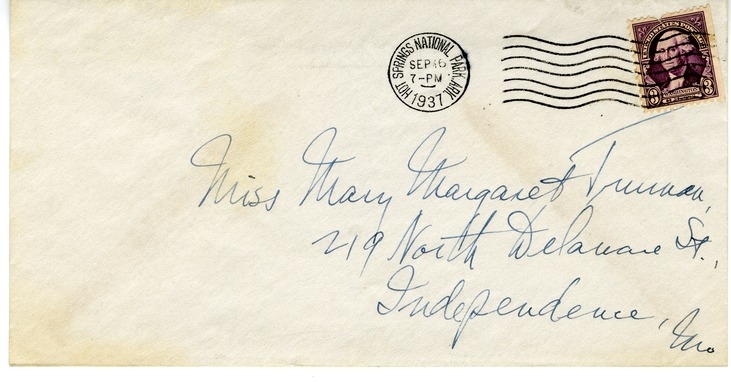 HOT SPRINGS NATIONAL PARK. ARK.
SEP 16
7-PM
1937
UNITED STATES POSTAGE
3 WASHINGTON 3
Miss Mary Margaret Truman,
219 North Delaware St.,
Independence, Mo.